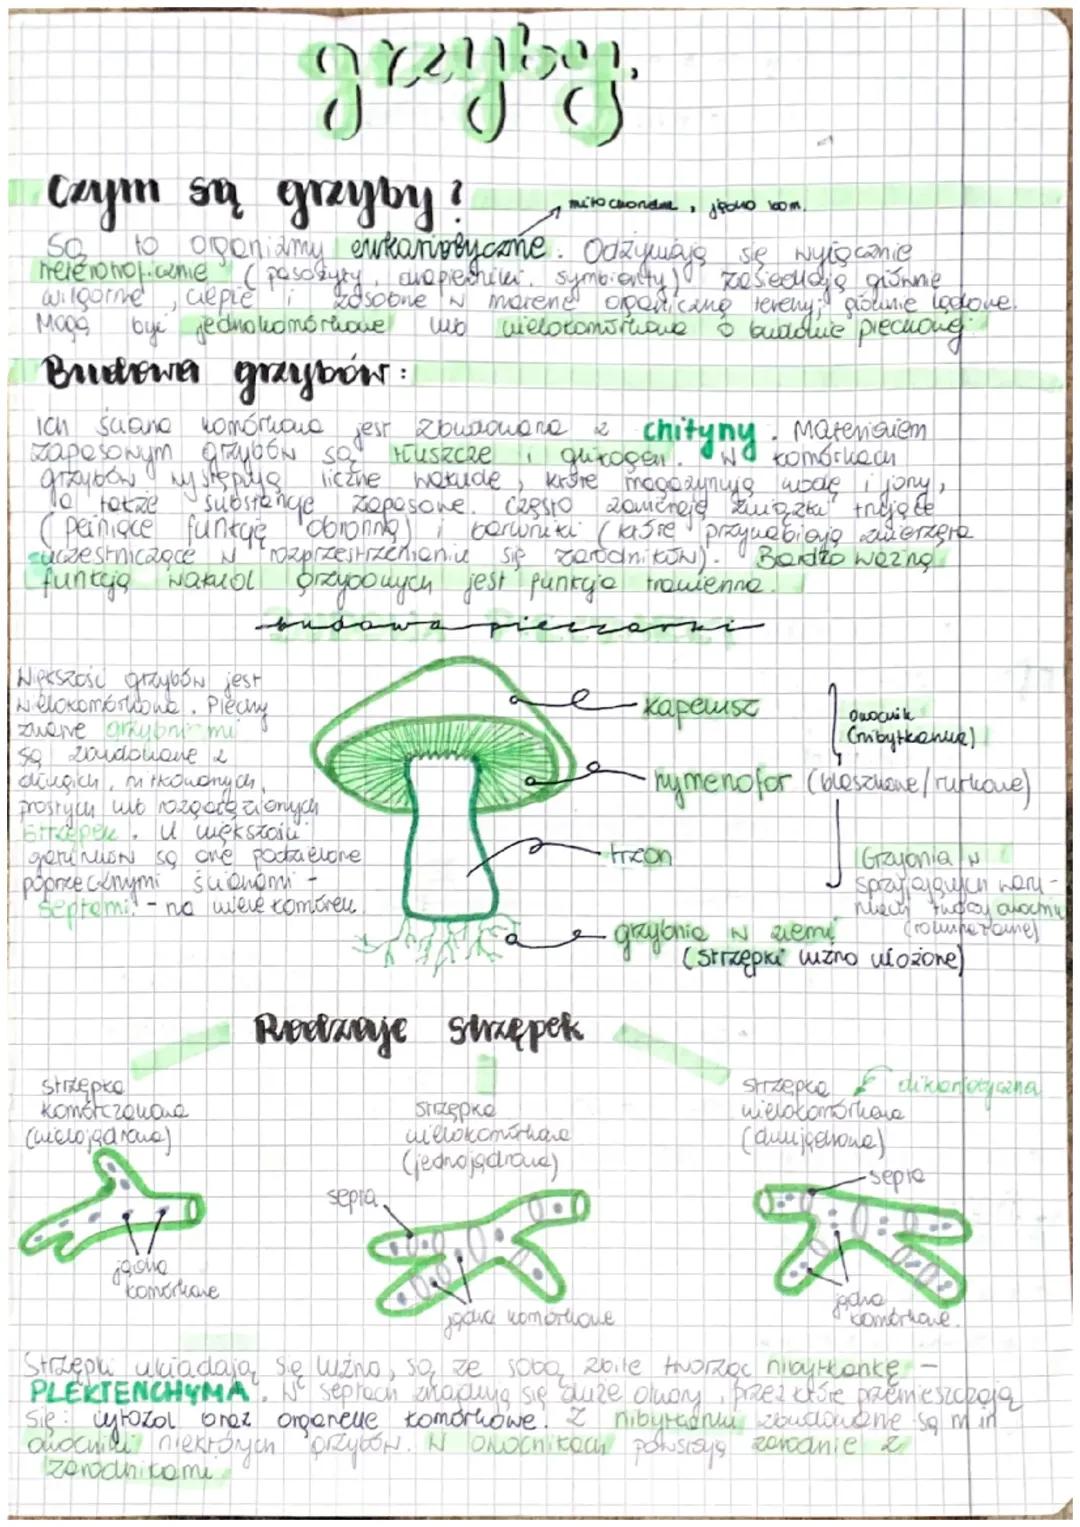 grzyby.
Czym są grzyby?
mitochondria, jądro kom.
Są to organizmy eukariotyczne. Odżywiają się wyłącznie
heterotroficznie (pasożyty, drapieżniki, symbionty) zasiedlają głównie
wilgotne, ciepłe i zasobne w materię organiczną tereny, głównie lądowe.
Mogą być jednokomórkowe lub wielokomórkowe o budowie plechowej
Budowa grzybów:
Ich ściana komórkowa jest zbudowana z chityny. Materiałem
zapasowym grzybów są tłuszcze i glikogen. W komórkach
grzybów występują liczne wakuole, które magazynują wodę i jony,
a także substancje zapasowe. Często zawierają związki trujące
(pełniące funkcję obronną) i barwniki (które przywabiają zwierzęta
uczestniczące w rozprzestrzenianiu się zarodników). Bardzo ważną
funkcją wakuol grzybowych jest funkcja trawienna.
budowa pieczarki
Większość grzybów jest
wielokomórkowa. Plechy
zwane grzybniami
są zbudowane z
długich, nitkowanych,
prostych lub rozgałęzionych
strzępek. U większości
gatunków są one podzielone
poprzecznymi ścianami -
septami - na wiele komórek.
kapelusz
hymenofor (blaszkowe/rurkowe)
trzon
grzybnia w ziemi
(strzępki luźno ułożone)
owocnik
(nibytkanka)
Grzybnia w
sprzyjających waru-
nkach tworzy owocniki
Rodzaje strzępek
strzępka
komórczakowa
(wielojądrowa)
jądra
komórkowe
strzępka
wielokomórkowa
(jednojądrowa)
septa
jądra komórkowe
strzępka dikariotyczna
wielokomórkowa
(dwujądrowa)
septa
jądra
komórkowe.
Strzępki układają się luźno, są ze sobą zbite tworząc nibytkankę -
PLEKTENCHYMA. W septach znajdują się duże otwory, przez które przemieszczają
się: cytozol oraz organelle komórkowe. Z nibytkanki zbudowane są m.in
owocniki niektórych grzybów. W owocnikach powstają zarodnie z
zarodnikami